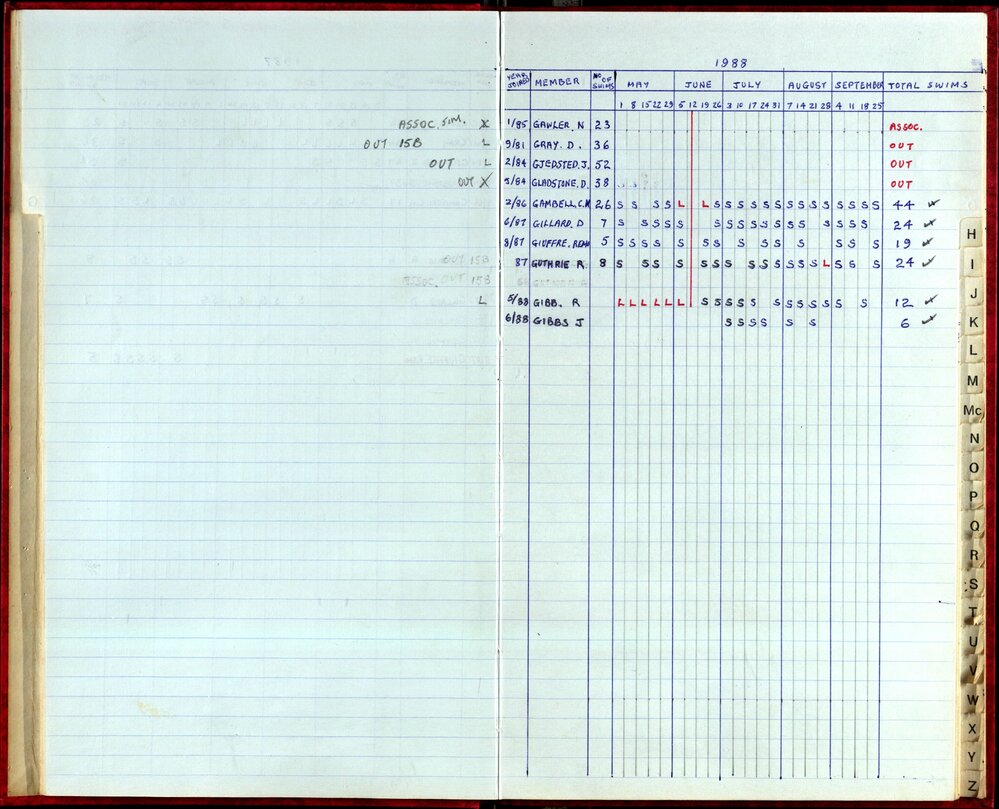 1988
YEAR JOINED MEMBER NO OF SWIMS MAY JUNE JULY AUGUST SEPTEMBER TOTAL SWIMS
1 8 15 22 29 5 12 19 26 3 10 17 24 31 7 14 21 28 4 11 18 25
ASSOC. SIM. X 1/85 GAWLER. N 23 ASSOC.
OUT 15B L 9/81 GRAY. D. 36 OUT
OUT L 2/84 GJEDSTED. J. 52 OUT
OUT X 5/84 GLADSTONE. D. 38 OUT
2/86 GAMBELL. C.M 26 S S S S L L S S S S S S S S S S S S S S 44 ✓
6/87 GILLARD. D 7 S S S S S S S S S S S S S S S S S 24 ✓
8/87 GIUFFRE. 5 S S S S S S S S S S S S S S 19 ✓
87 GUTHRIE R. 8 S S S S S S S S S S S S S L S S S 24 ✓
L 5/88 GIBB. R L L L L L L S S S S S S S S S S S S 12 ✓
6/88 GIBBS J S S S S S S 6 ✓
H
I
J
K
L
M
Mc
N
O
P
Q
R
S
T
U
V
W
X
Y
Z